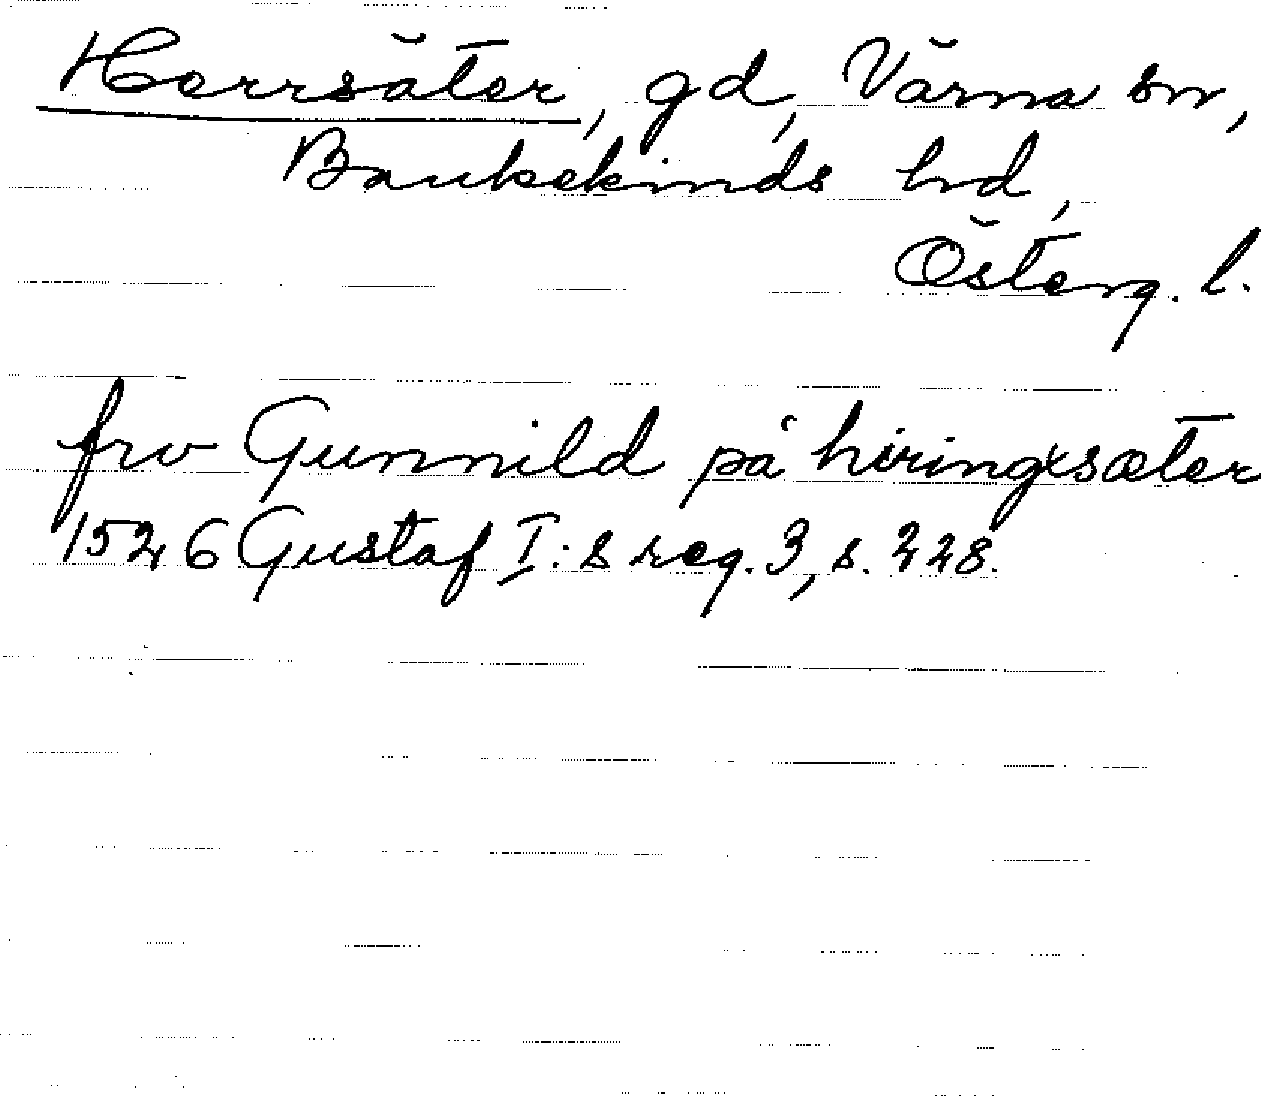 Herrsäter, gd, Värna sn,
Bankekinds hd,
Österg. l.
frv Gunnild på hiringxsæter
1526 Gustaf I:s reg. 3, s. 228.